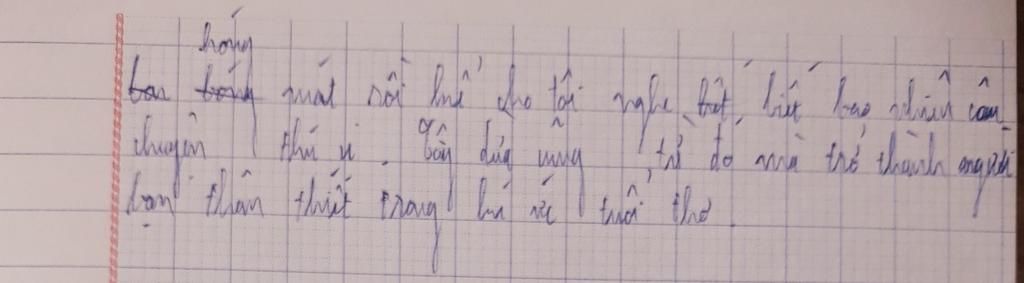 hóng
ban bóng mát rồi kể cho tôi nghe biết biết bao nhiêu câu
chuyện thú vị. Cây dừa cũng từ đó mà trở thành người
bạn thân thiết trong kí ức tuổi thơ.